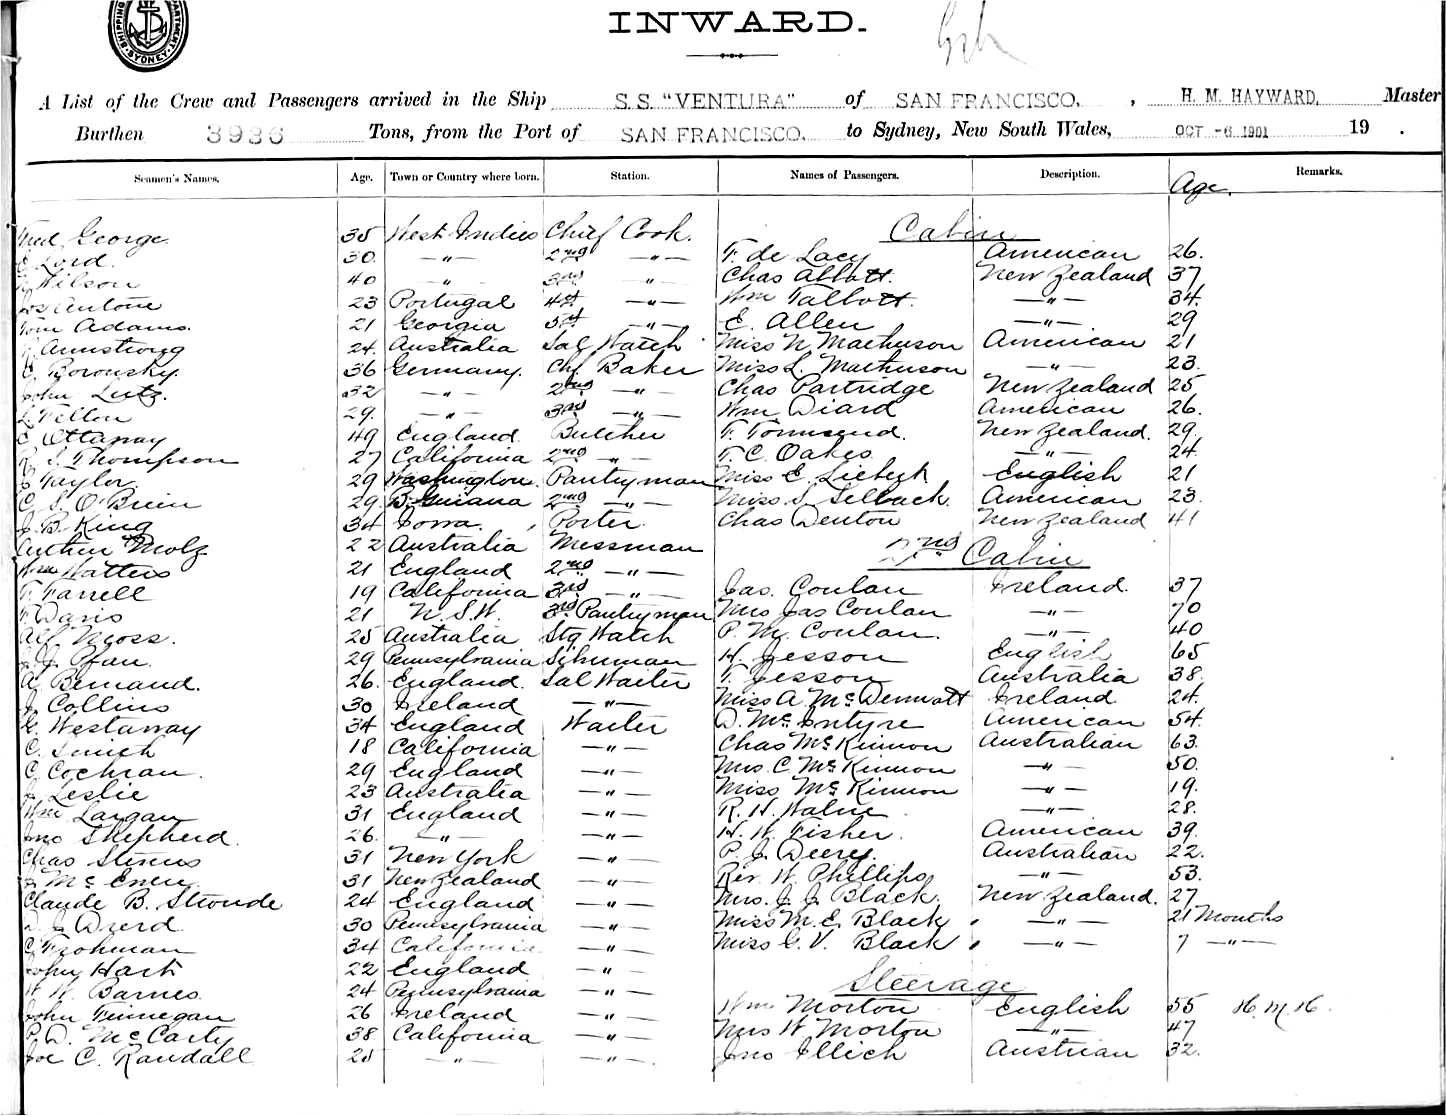 SHIPPING DEPARTMENT. SYDNEY
INWARD.
A List of the Crew and Passengers arrived in the Ship S.S. "VENTURA" of SAN FRANCISCO, , H. M. HAYWARD, Master
Burthen 3936 Tons, from the Port of SAN FRANCISCO. to Sydney, New South Wales, OCT -6 1901 19 .
Seamen's Names. Age. Town or Country where born. Station. Names of Passengers. Description. Age. Remarks.
Fred George. 35 West Indies Chief Cook. Cabin
Lord. 30. —"— 2nd —"— F. de Lacy American 26.
Wilson 40 —"— 3rd —"— Chas Abbott. New Zealand 37
Jos Antone 23 Portugal 4th —"— Wm Talbott. —"— 34.
Tom Adams. 21 Georgia 5th —"— E. Allen —"— 29
Armstrong 24. Australia Sal Watch Miss N Mathuson American 21
Borousky. 36 Germany. Chf. Baker Miss L. Mathuson —"— 23.
John Lutz. 32 —"— 2nd —"— Chas Partridge New Zealand 25
29. —"— 3rd —"— Wm Diard American 26.
Ottaway 49 England. Butcher F. Townsend. New Zealand. 29
R. S. Thompson 27 California 2nd —"— F. C. Oakes —"— 24.
Taylor. 29 Washington. Pantryman Miss E. English 21
C. S. O'Brien 29. B. Guiana 2nd —"— Miss S. Selback. American 23.
J. B. King 34 Iowa. Porter. Chas Denton New Zealand 41
Arthur Molz 22 Australia Messman 2nd Cabin
Wm Watters 21 England 2nd —"—
F. Farrell 19 California 3rd —"— Jas. Conlan Ireland. 37
F. Davis 21 N. S. W. 3rd Pantryman Mrs Jas Conlan —"— 70
Alf Ngoss. 25 Australia Stg Watch P. M. Conlan. —"— 40
J. J. Pfau. 29 Pennsylvania H. Jesson English 65
A. Bernand. 26. England. Sal Waiter F. Jesson Australia 38.
J. Collins 30 Ireland —"— Miss A McDermott Ireland 24.
G. Westaway 34 England Waiter D. McIntyre American 54.
C. Smith 18 California —"— Chas McKinnon Australian 63.
C. Cochran. 29 England —"— Mrs. C. McKinnon —"— 50.
J. Leslie 23 Australia —"— Miss McKinnon —"— 19.
Wm Largan 31 England —"— R. H. —"— 28.
Jno Shepherd. 26. —"— —"— H. W. Fisher. American 39.
Chas Stevens 31 New York —"— P. J. Deery. Australian 22.
J. 31 New Zealand —"— Rev. W. Phillips —"— 53.
Claude B. Stroude 24 England —"— Mrs. J. J. Black. New Zealand. 27
D. J. Dzerd 30 Pennsylvania —"— Miss M. E. Black —"— 21 Months
C. Frohman 34 California —"— Miss G. V. Black —"— 7 —"—
John Hart 22 England —"—
W. W. Barnes. 24 Pennsylvania —"— Steerage
John Finnegan 26 Ireland —"— Wm Morton English 55 16. M 16.
P. D. McCarty 38 California —"— Mrs W Morton —"— 47
Joe C. Randall —"— —"— Jno Illich Austrian 32.